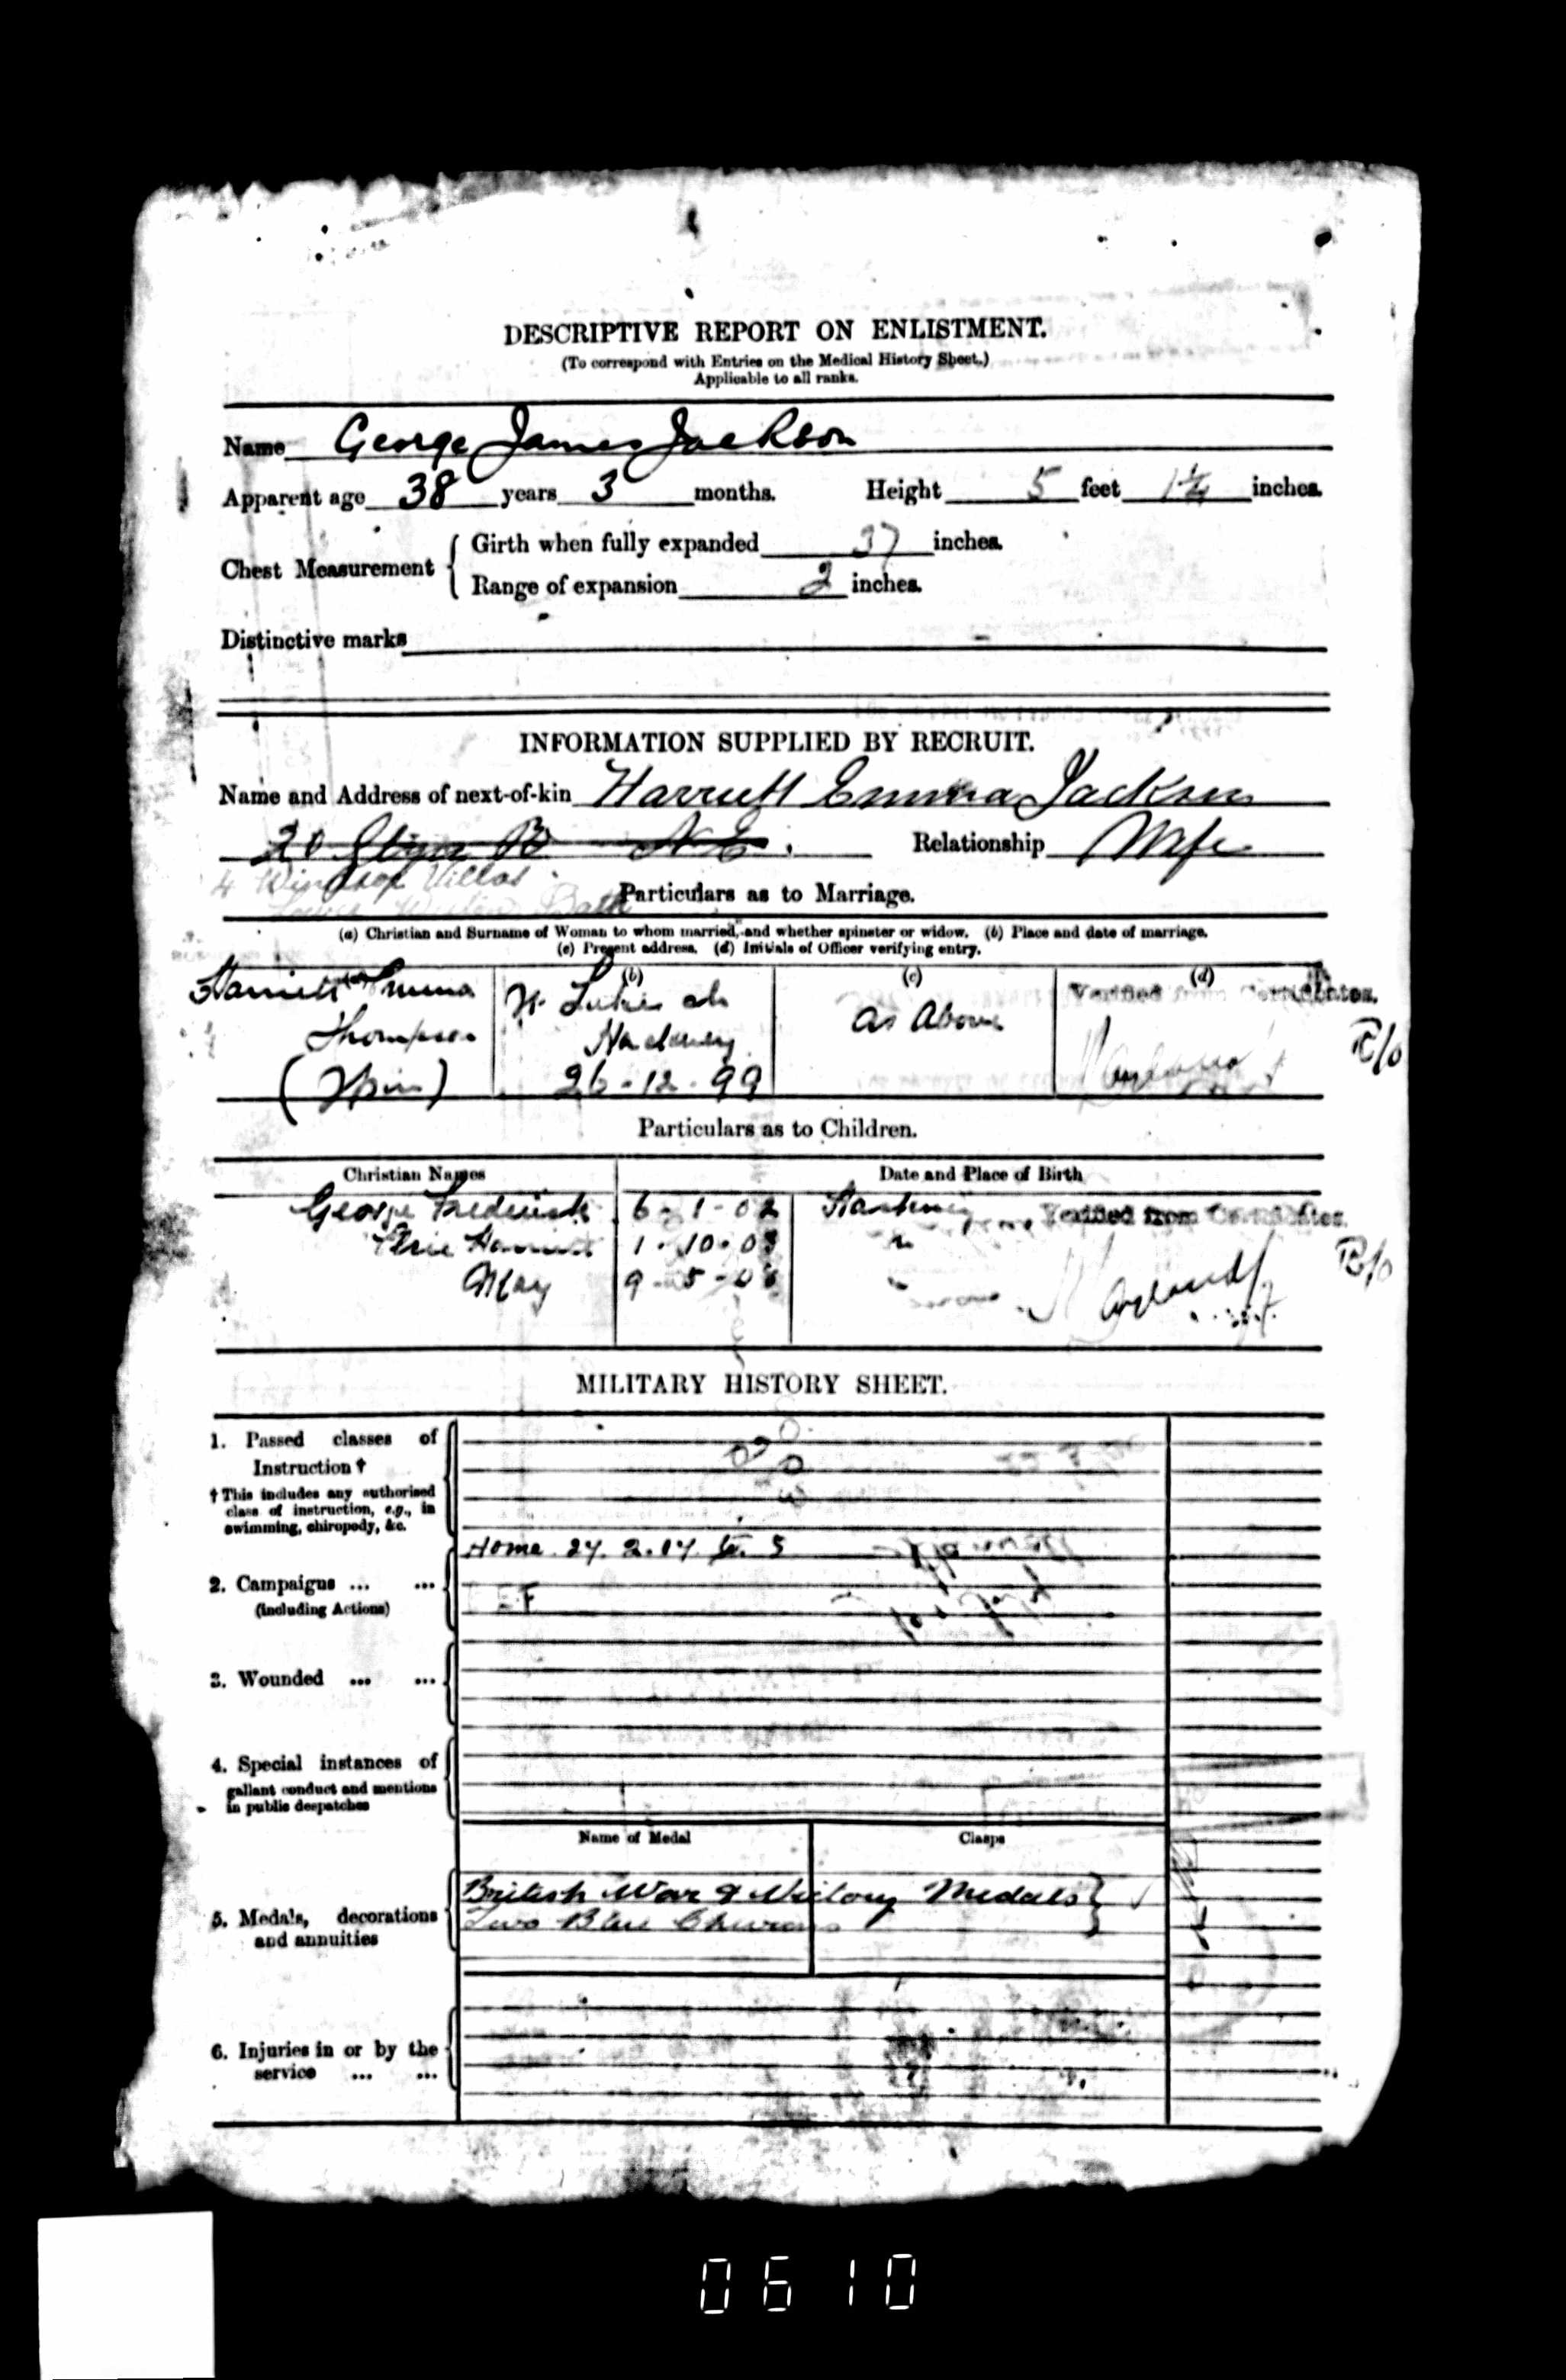 DESCRIPTIVE REPORT ON ENLISTMENT.
(To correspond with Entries on the Medical History Sheet.)
Applicable to all ranks.
Name George James Jackson
Apparent age 38 years 3 months. Height 5 feet 1¼ inches.
Chest Measurement { Girth when fully expanded 37 inches.
Range of expansion 2 inches.
Distinctive marks
INFORMATION SUPPLIED BY RECRUIT.
Name and Address of next-of-kin Harriett Emma Jackson
20 Glyn Rd N.E. Relationship Wife
4 Windsor Villas
Lower Weston Bath
Particulars as to Marriage.
(a) Christian and Surname of Woman to whom married, and whether spinster or widow. (b) Place and date of marriage.
(c) Present address. (d) Initials of Officer verifying entry.
(a) (b) (c) (d)
Harriett Emma Thompson (Spin)
St Lukes Ch Hackney 26-12-99
As Above
Verified from Certificates.
Particulars as to Children.
Christian Names Date and Place of Birth
George Frederick 6-1-02 Hackney Verified from Certificates.
Elsie Harriett 1-10-03 "
May 9-5-0
MILITARY HISTORY SHEET.
1. Passed classes of
Instruction †
† This includes any authorised
class of instruction, e.g., in
swimming, chiropody, &c.
Home 27.2.17 to 5
2. Campaigns ... ...
(including Actions)
EF
3. Wounded ... ...
4. Special instances of
gallant conduct and mentions
in public despatches
Name of Medal Clasps
British War & Victory Medals }
5. Medals, decorations
and annuities
Two Blue Chevrons
6. Injuries in or by the
service ... ...
0610